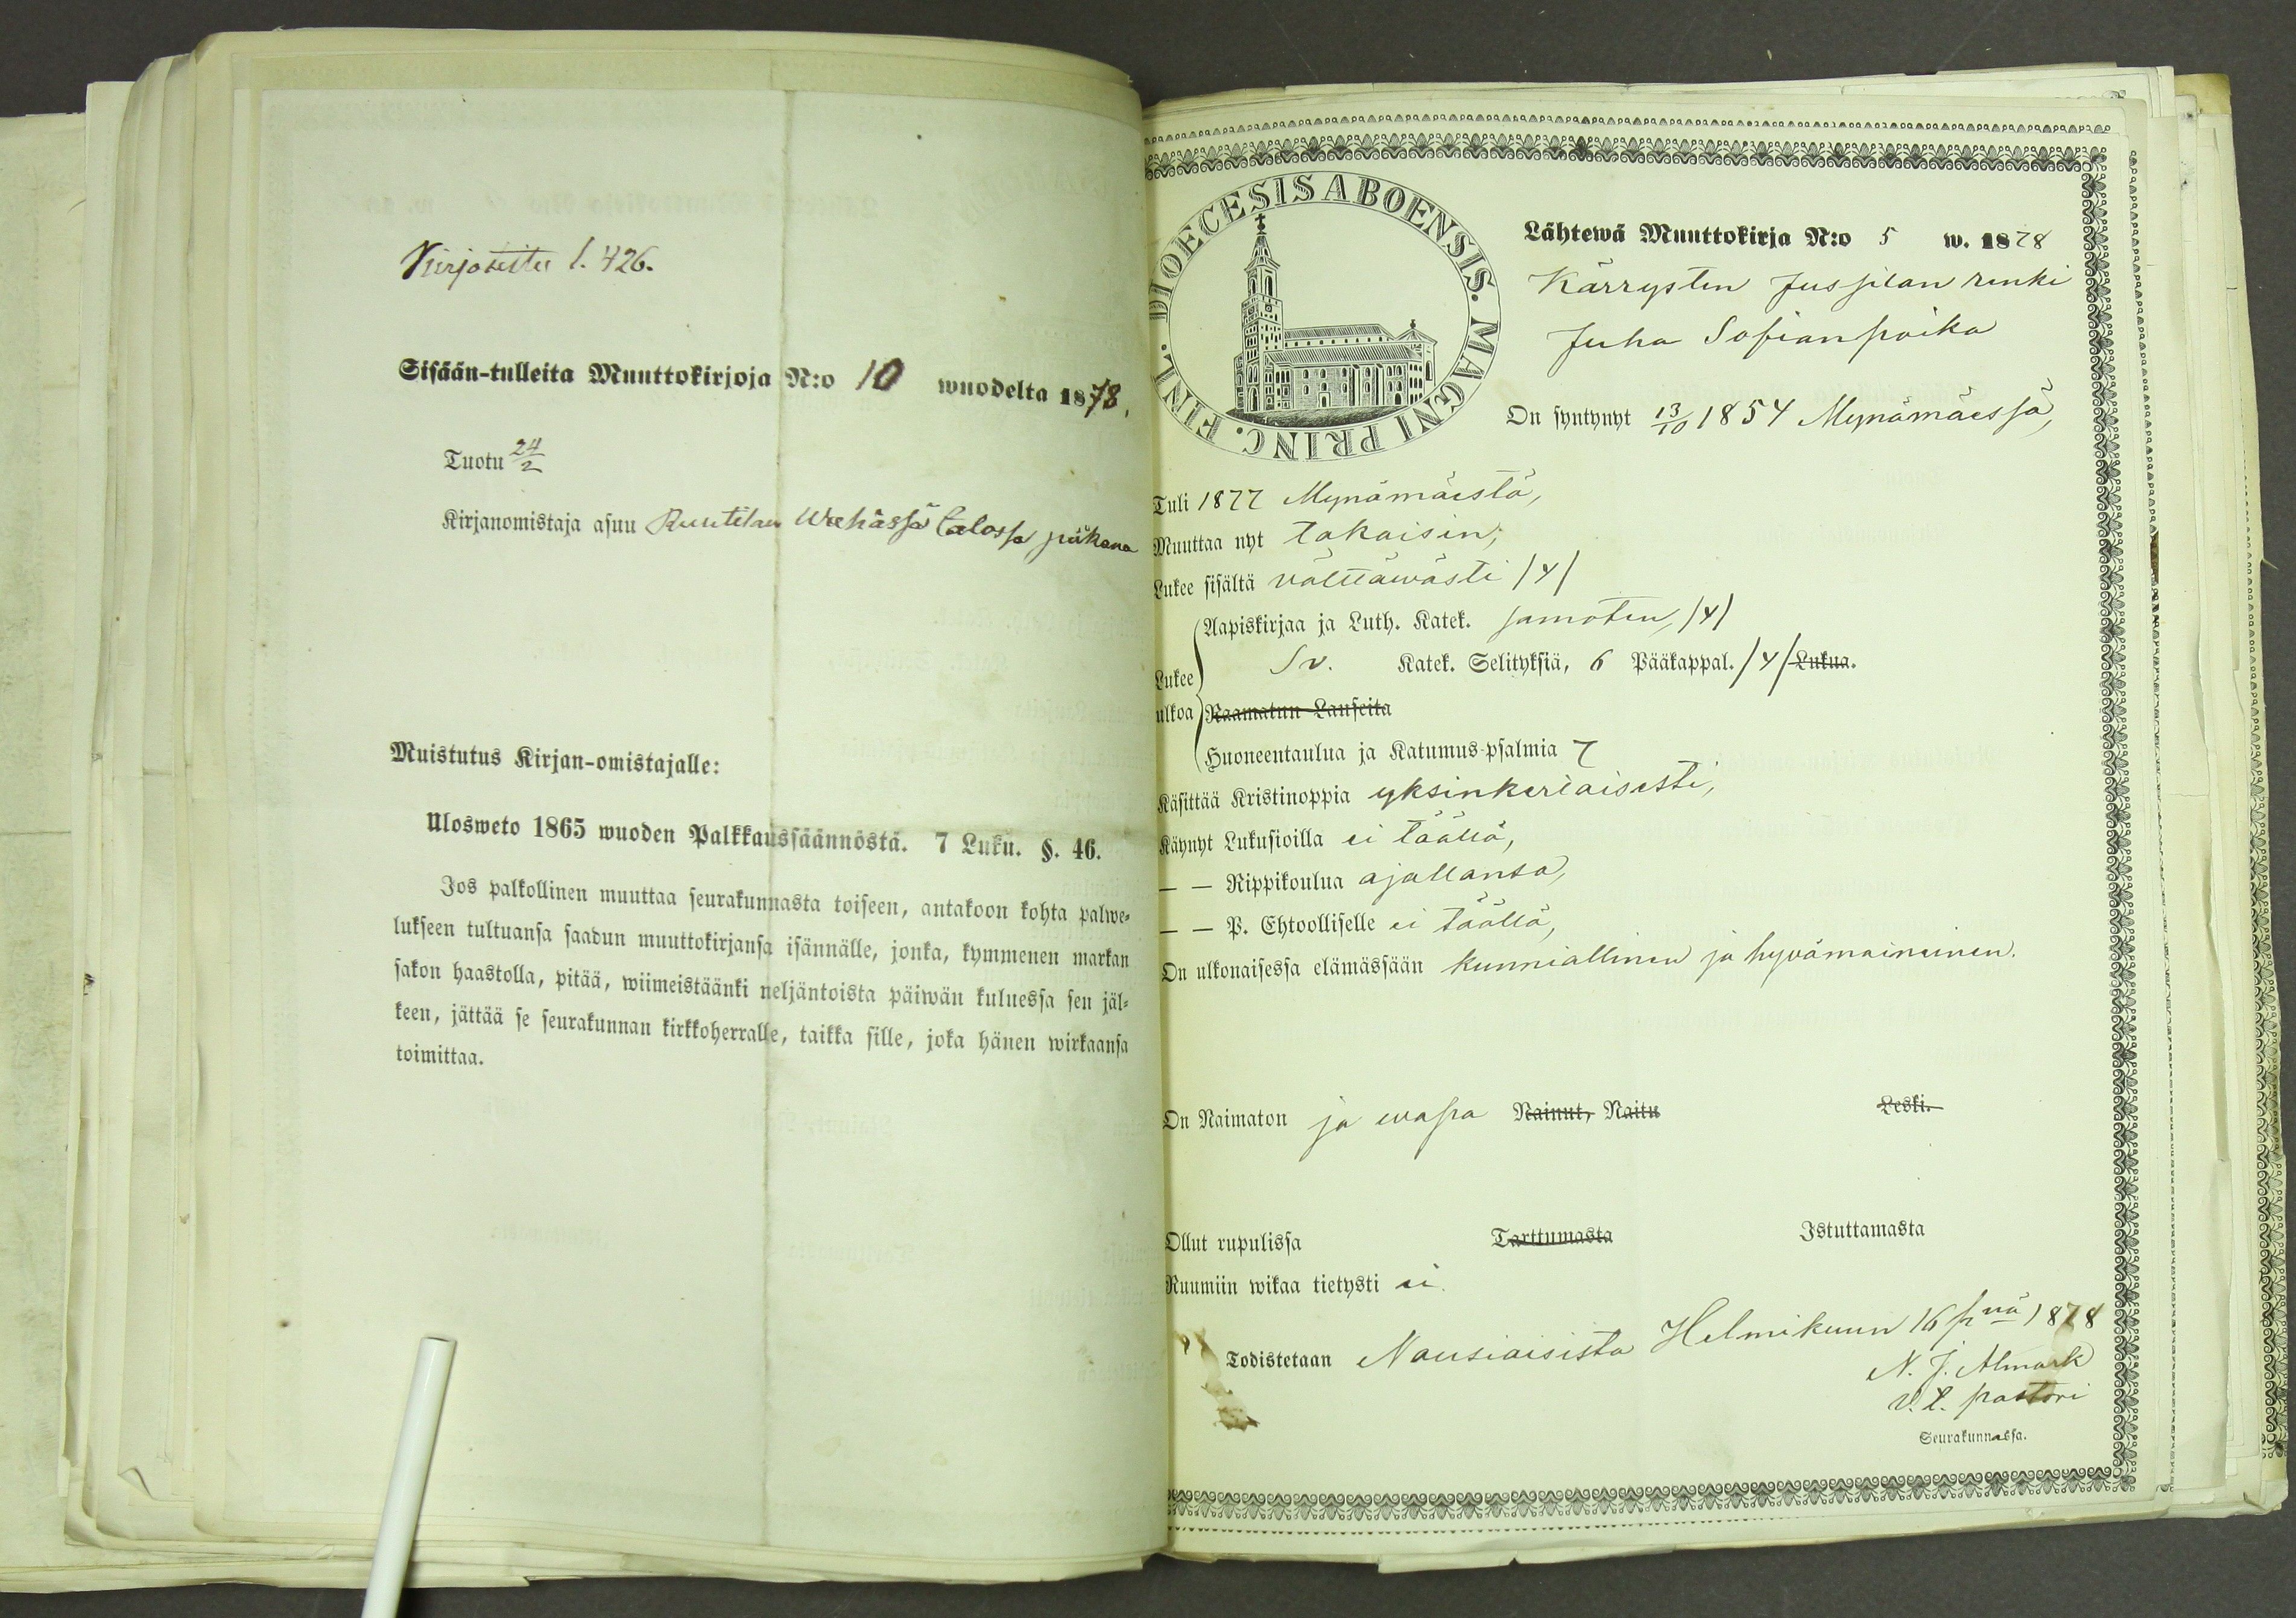 Kirjotettu l. 426.
Sisään-tulleita Muuttokirjoja N:o 10 wuodelta 1878.
Tuotu 24/2
Kirjanomistaja asuu Ruutilan talossa piikana
Muistutus Kirjan-omistajalle:
Ulosweto 1865 wuoden Palkkaussäännöstä. 7 Luku. §. 46.
Jos palkollinen muuttaa seurakunnasta toiseen, antakoon kohta palwe-
lukseen tultuansa saadun muuttokirjansa isännälle, jonka, kymmenen markan
sakon haastolla, pitää, wiimeistäänki neljäntoista päiwän kuluessa sen jäl-
keen, jättää se seurakunnan kirkkoherralle, taikka sille, joka hänen wirkaansa
toimittaa.
DIOECESIS ABOENSIS. MAGNI PRINC. FINL.
Lähtewä Muuttokirja N:o 5 w. 1878
Kärrysten Jussilan renki
Juha Sofianpoika
On syntynyt 13/10 1854 Mynämäessä,
Tuli 1877 Mynämäestä,
Muuttaa nyt takaisin;
Lukee sisältä välttäwästi /4/
Lukee ulkoa
Aapiskirjaa ja Luth. Katek. samoten, /4/
Sv. Katek. Selityksiä, 6 Pääkappal. /4/ Lukua.
Raamatun Lauseita
Huoneentaulua ja Katumus-psalmia 7
Käsittää Kristinoppia yksinkertaisesti,
Käynyt Lukusioilla ei täällä,
— — Rippikoulua ajallansa,
— — P. Ehtoolliselle ei täällä,
On ulkonaisessa elämässään kunniallinen ja hyvämaineinen.
On Naimaton ja wapa Nainut, Naitu Leski.
Ollut rupulissa Tarttumasta Istuttamasta
Ruumiin wikaa tietysti ei.
Todistetaan Nousiaisista Helmikuun 16 pnä 1878
N. J. Almark
V.t. pastori
Seurakunnassa.